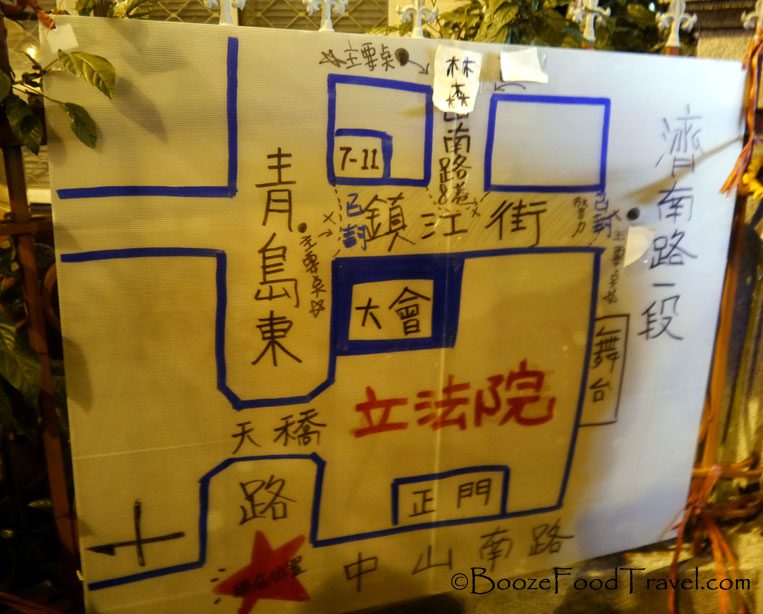 主要桌
林森
南路巷
7-11
濟南路一段
青島東
已封
鎮江街
已封
警力
主要桌
大會
舞台
立法院
天橋
路
正門
中山南路
©BoozeFoodTravel.com